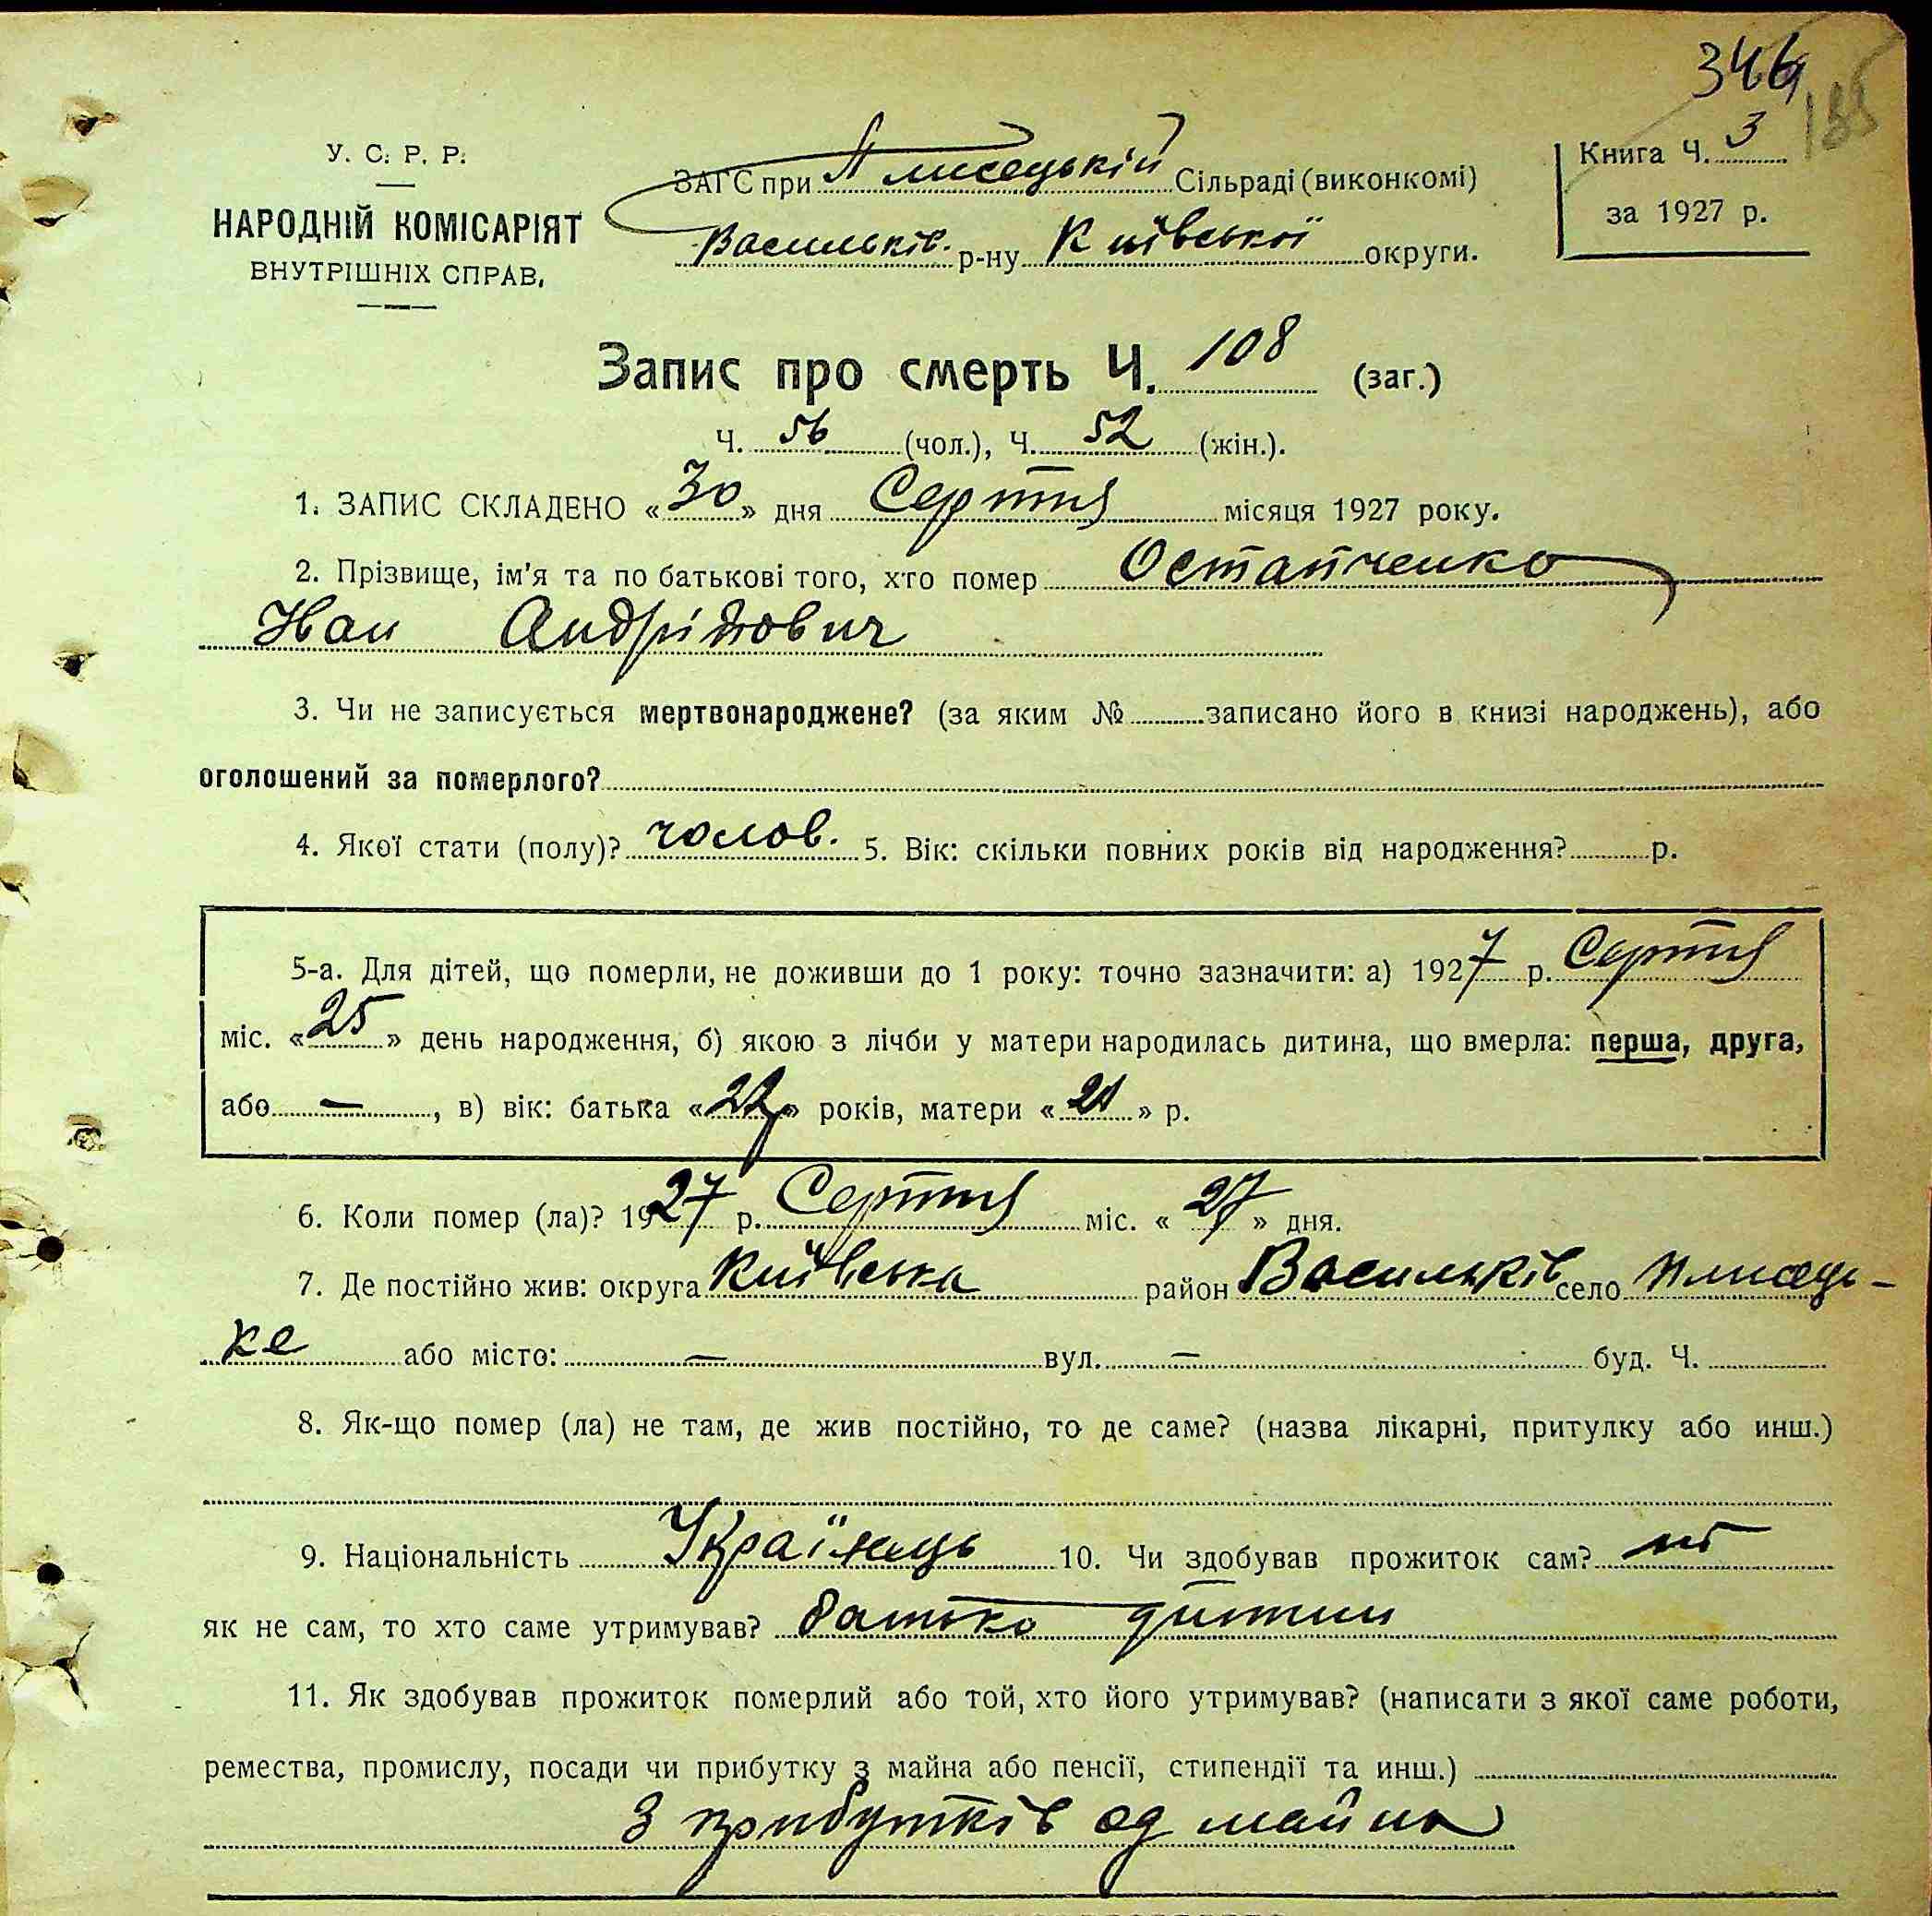 346
185
У. С. Р. Р.
НАРОДНІЙ КОМІСАРІЯТ
ВНУТРІШНІХ СПРАВ.
ЗАГС при Плисецькій Сільраді (виконкомі)
Васильків. р-ну Київської округи.
Книга Ч. 3
за 1927 р.
Запис про смерть Ч. 108 (заг.)
Ч. 56 (чол.), Ч. 52 (жін.).
1. ЗАПИС СКЛАДЕНО «30» дня Серпня місяця 1927 року.
2. Прізвище, ім'я та по батькові того, хто помер Остапченко
Іван Андрійович
3. Чи не записується мертвонароджене? (за яким № записано його в книзі народжень), або
оголошений за померлого?
4. Якої стати (полу)? чолов. 5. Вік: скільки повних років від народження? р.
5-а. Для дітей, що померли, не доживши до 1 року: точно зазначити: а) 1927 р. Серпня
міс. «25» день народження, б) якою з лічби у матери народилась дитина, що вмерла: перша, друга,
або —, в) вік: батька «22» років, матери «21» р.
6. Коли помер (ла)? 1927 р. Серпня міс. «27» дня.
7. Де постійно жив: округа Київська район Васильків село Плисець-
ке або місто: — вул. — буд. Ч.
8. Як-що помер (ла) не там, де жив постійно, то де саме? (назва лікарні, притулку або инш.)
9. Національність Українець 10. Чи здобував прожиток сам? ні
як не сам, то хто саме утримував? батько дитини
11. Як здобував прожиток померлий або той, хто його утримував? (написати з якої саме роботи,
ремества, промислу, посади чи прибутку з майна або пенсії, стипендії та инш.)
З прибутків од майна